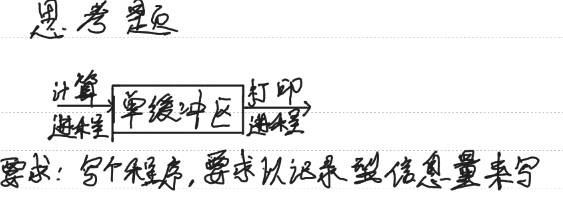 思考题
计算 单缓冲区 打印
进程 进程
要求：写个程序，要求以记录型信息量来写